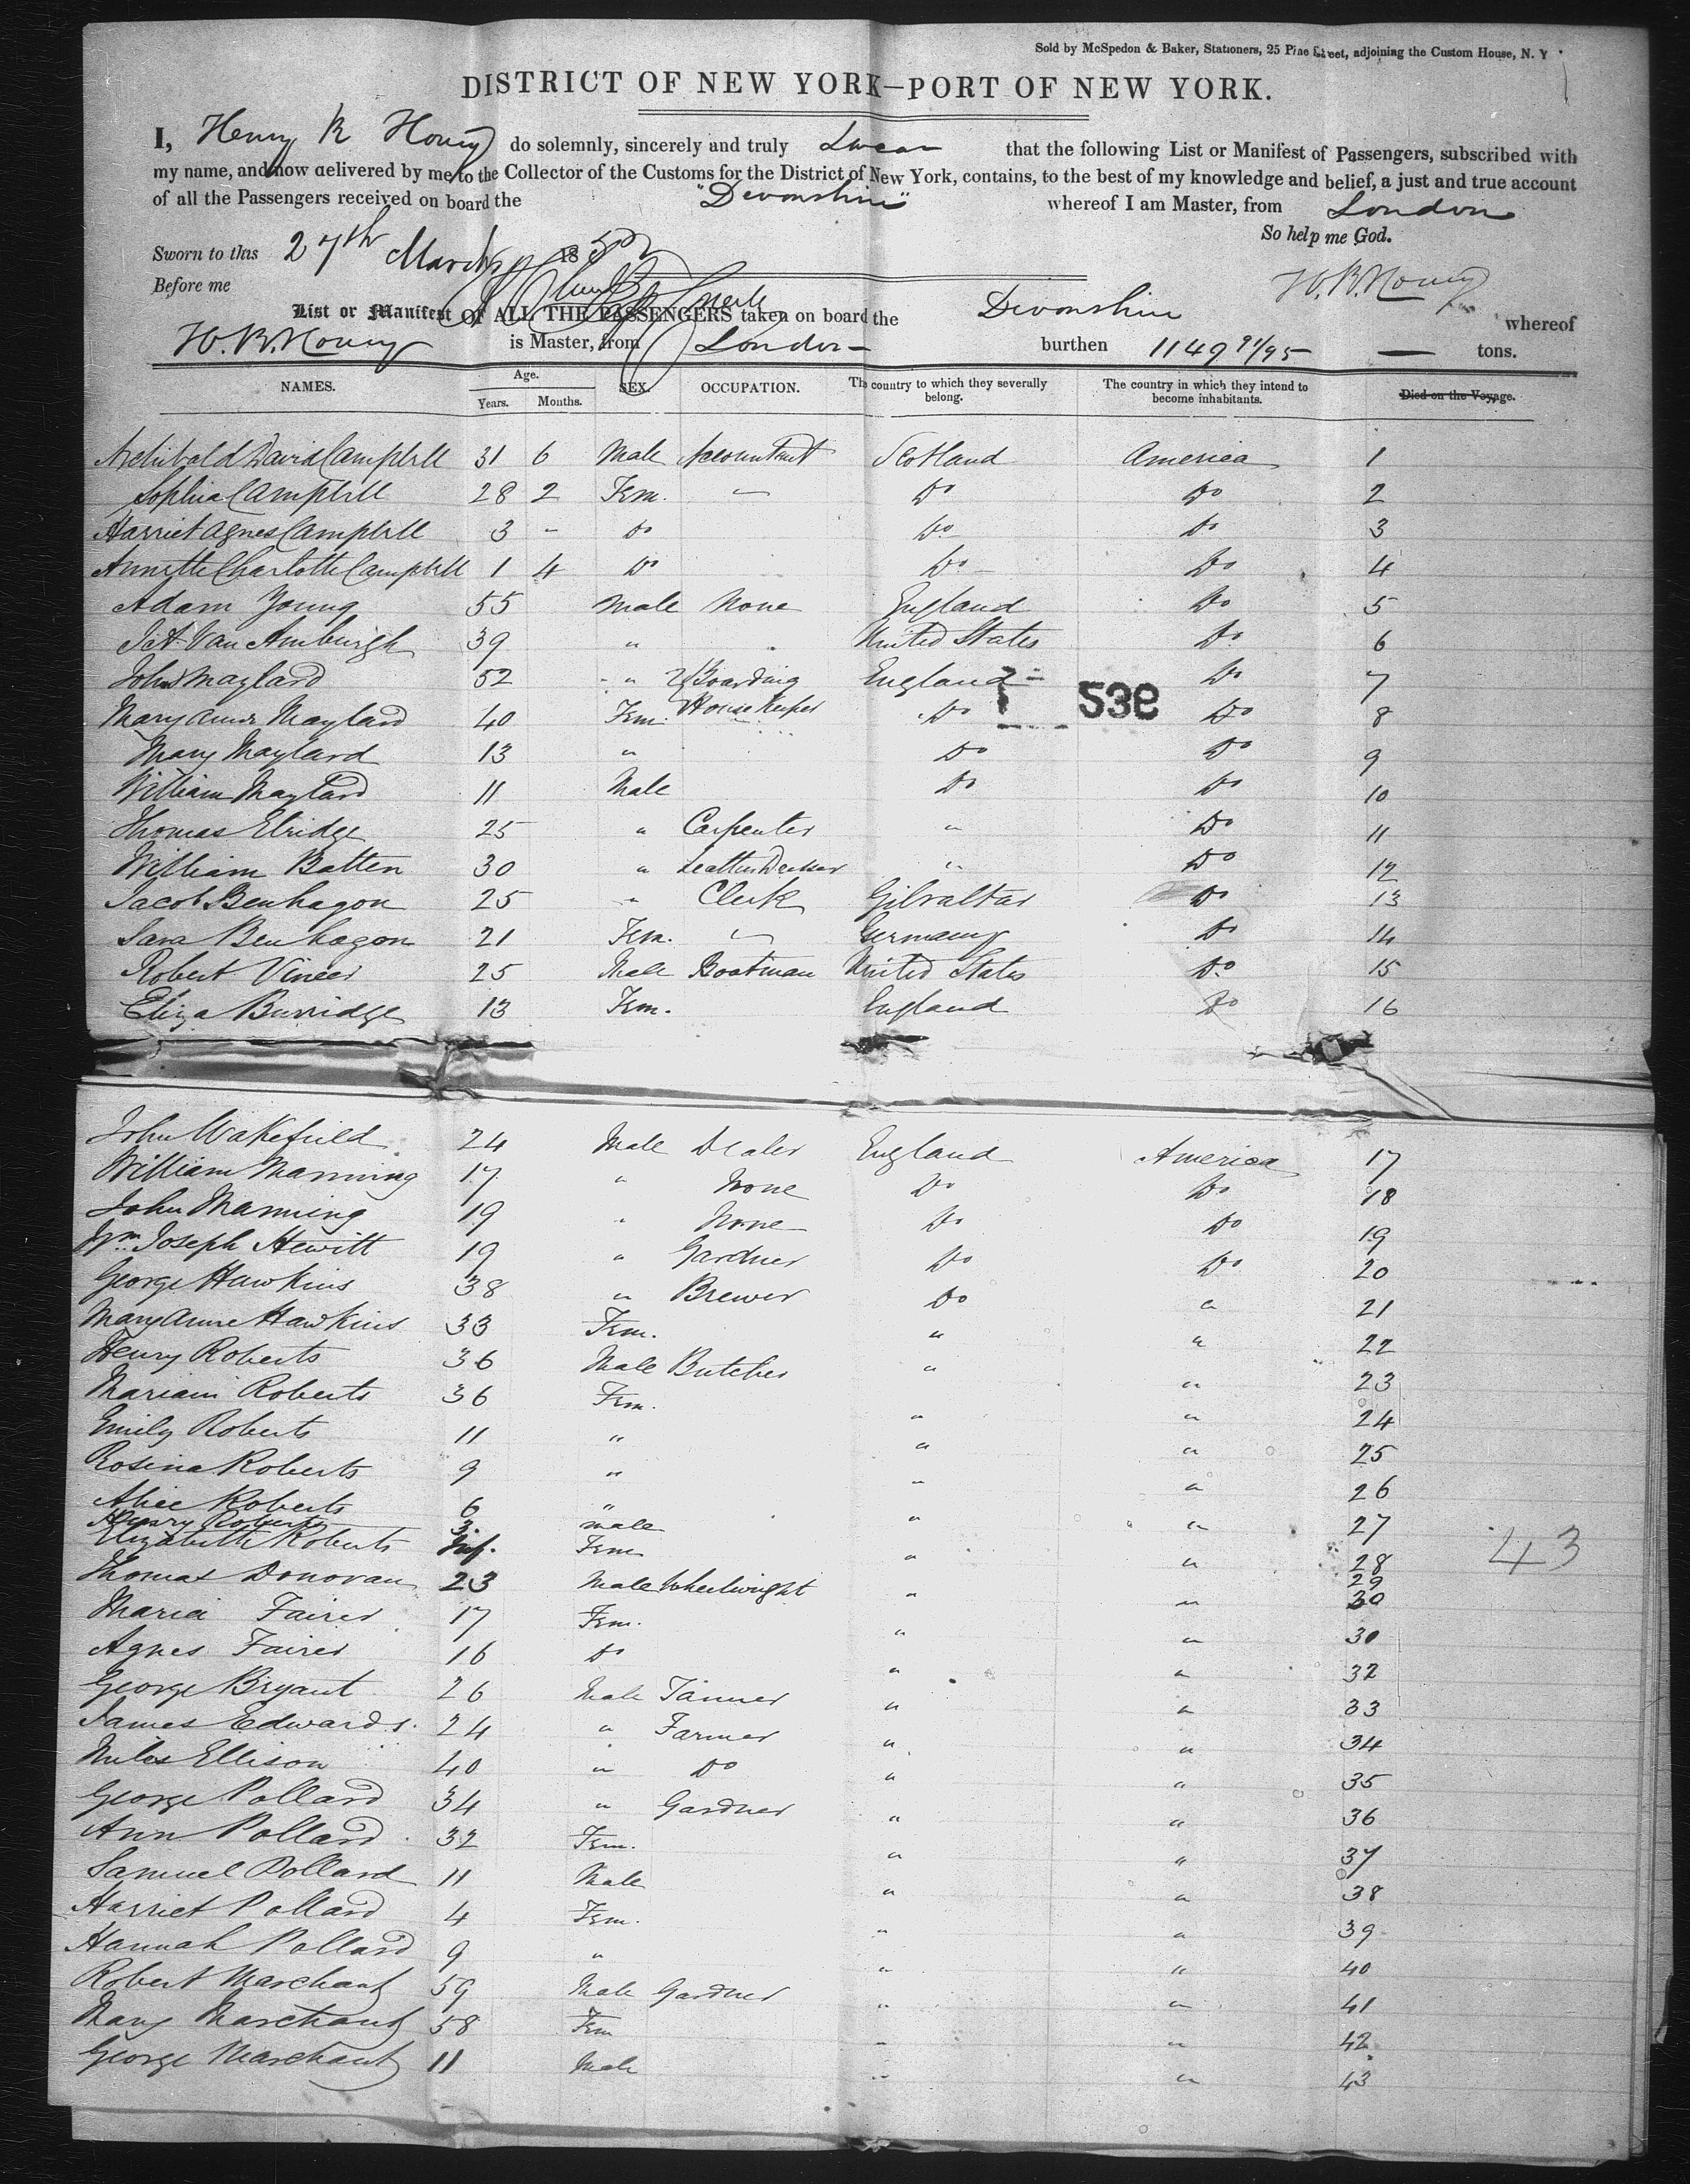 Sold by McSpedon & Baker, Stationers, 25 Pine Street, adjoining the Custom House, N. Y
DISTRICT OF NEW YORK—PORT OF NEW YORK.
I, Henry R Hovey do solemnly, sincerely and truly Swear that the following List or Manifest of Passengers, subscribed with
my name, and now delivered by me to the Collector of the Customs for the District of New York, contains, to the best of my knowledge and belief, a just and true account
of all the Passengers received on board the "Devonshire" whereof I am Master, from London
So help me God.
Sworn to this 27th March 1852
H.R. Hovey
Before me
List or Manifest OF ALL THE PASSENGERS taken on board the Devonshire whereof
H. R. Hovey is Master, from London burthen 1149 91/95 — tons.
NAMES. Age. Years. Months. SEX. OCCUPATION. The country to which they severally belong. The country in which they intend to become inhabitants. Died on the Voyage.
Archibald David Campbell 31 6 Male Accountant Scotland America 1
Sophia Campbell 28 2 Fem. — Do Do 2
Harriet Agnes Campbell 3 - Do Do Do 3
Annette Charlotte Campbell 1 4 Do Do Do 4
Adam Young 55 Male None England Do 5
Van Amburgh 39 " United States Do 6
John Maylard 52 " Boarding England Do 7
Mary Anne Maylard 40 Fem. House Keeper Do Do 8
53e
Mary Maylard 13 " Do Do 9
William Maylard 11 Male Do Do 10
Thomas Elridge 25 " Carpenter " Do 11
William Batten 30 " Leather Dresser " Do 12
Jacob Benhagon 25 " Clerk Gibraltar Do 13
Sara Benhagon 21 Fem. — Germany Do 14
Robert Vineer 25 Male Boatman United States Do 15
Eliza Burridge 13 Fem. England Do 16
John Wakefield 24 Male Dealer England America 17
William Manning 17 " None Do Do 18
John Manning 19 " None Do Do 19
Wm. Joseph Hewitt 19 " Gardner Do Do 20
George Hawkins 38 " Brewer Do " 21
Mary Anne Hawkins 33 Fem. " " 22
Henry Roberts 36 Male Butcher " " 23
Mariam Roberts 36 Fem. " " 24
Emily Roberts 11 " " " 25
Rosina Roberts 9 " " " 26
Alice Roberts 6 " " " 27
Henry Roberts 3. male 28
Elizabeth Roberts Inf. Fem " " 29
43
Thomas Donovan 23 Male Wheelwright " " 30
Maria Fairer 17 Fem. " " 30
Agnes Fairer 16 Do " " 32
George Bryant 26 Male Tanner " " 33
James Edwards. 24 " Farmer " " 34
Miles Ellison 40 " Do " " 35
George Pollard 34 " Gardner " " 36
Ann Pollard 32 Fem. " " 37
Samuel Pollard 11 Male " " 38
Harriet Pollard 4 Fem. " " 39
Hannah Pollard 9 " " " 40
Robert Marchant 59 Male Gardner " " 41
Mary Marchant 58 Fem " " 42
George Marchant 11 Male " " 43